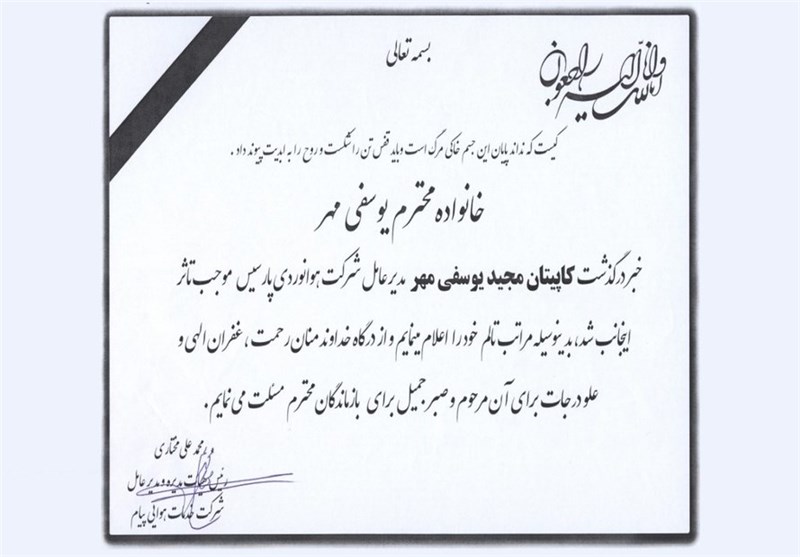 بسمه تعالی
انا لله و انا الیه راجعون
کیست که نداند پایان این جسم خاکی مرگ است و باید قفس تن را شکست و روح را به ابدیت پیوند داد .
خانواده محترم یوسفی مهر
خبر درگذشت کاپیتان مجید یوسفی مهر مدیرعامل شرکت هوانوردی پارسیس موجب تاثر
اینجانب شد، بدینوسیله مراتب تالم خود را اعلام مینمایم و از درگاه خداوند منان رحمت ، غفران الهی و
علو درجات برای آن مرحوم و صبر جمیل برای بازماندگان محترم مسئلت می نمایم .
محمد علی مختاری
رئیس هیات مدیره و مدیرعامل
شرکت خدمات هوایی پیام